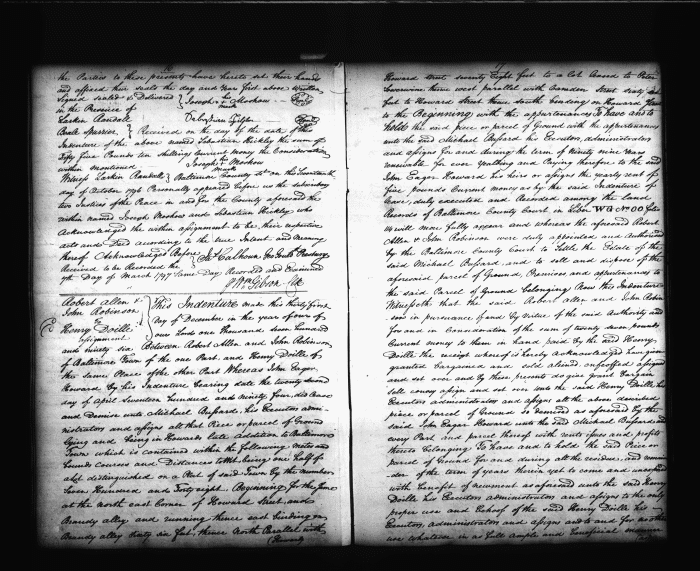 the Parties to these presents have hereto set their hand
and affixed their seals the day and Year first above Written
Signed sealed & Delivered
in the Presence of
Joseph Meshow
mark
Larkin Randall
Beale Spurrier
Received on the day of the date of this
Indenture of the above named Sebastian Hickley the sum of
Fifty five Pounds ten shillings Current money the Consideration
within mentioned
Joseph Meshow
mark
Witness Larkin Randall
Baltimore County Sc on the Seventeenth
day of October 1796 Personally appeared before us the subscribers
two Justices of the Peace in and for the County aforesaid the
within named Joseph Meshow and Sebastian Hickley who
Acknowledged the within assignment to be their respective
acts and Deed according to the true Intent and Meaning
thereof Acknowledged Before Js Calhoun, Geo Gould Presbury
Received to be Recorded the
7th Day of March 1797 Same Day Recorded and Examined
Wm Gibson Clk
Robert Allen &
John Robinson
to
Henry Doille
assignment
This Indenture made this thirty first
Day of December in the year of our
Lord one thousand seven hundred
and ninety six Between Robert Allen and John Robinson
of Baltimore Town of the one Part and Henry Doille of
the Same Place of the other Part Whereas John Eager
Howard by his Indenture bearing date the twenty second
day of April Seventeen hundred and ninety four, did Lease
and Demise unto Michael Bussard, his Executors admi-
nistrators and assigns all that Piece or parcel of Ground
lying and being in Howards late Addition to Baltimore
Town which is contained within the following metes and
bounds Courses and Distances to Wit being one half of
a lot distinguished on a Plat of said Town by the number
Seven Hundred and Forty eight Beginning for the same
at the north east Corner of Howard Street and
Brandy alley and running thence east binding on
Brandy alley Sixty six feet, thence North Parallel with
(Howard
Howard street seventy Eight feet to a lot leased to Peter
thence west parallel with Camden Street sixty six
feet to Howard Street thence South bending on Howard Street
to the Beginning with the appurtenances To have and to
hold the said piece or parcel of Ground with the appurtenances
unto the said Michael Bussard, his Executors, administrators
and assigns for and during the term of Ninety nine Years
renewable for ever Yealding and Paying therefore to the said
John Eager Howard his heirs or assigns the yearly rent of
five pounds Current money as by the said Indenture of
Lease, duly executed and Recorded among the land
Records of Baltimore County Court in Liber WG No OO folio
will more fully appear and whereas the aforesaid Robert
Allen & John Robinson were duly appointed and Authorized
by the Baltimore County Court to Settle the Estate of the
said Michael Bussard and to sell and dispose of the
aforesaid parcel of Ground, Premises and appurtenances to
the said Parcel of Ground belonging Now this Indenture
Witnesseth that the said Robert Allen and John Robin
son in pursuance of and by Virtue of the said Authority and
for and in Consideration of the sum of twenty seven pounds
Current money to them in hand paid by the said Henry
Doille the receipt whereof is hereby acknowledged have given
granted bargained and sold aliened enfeoffed assigned
and set over and by these presents do give grant Bargain
sell convey assign and set over unto the said Henry Doille his
Executors administrators and assigns all the above described
piece or parcel of Ground so demised as aforesaid by the
said John Eager Howard unto the said Michael Bussard and
every Part and parcel thereof with rents issues and profits
thereto belonging To have and to hold the said Piece or
parcel of Ground for and during all the residue and remain
der of the term of years therein yet to come and unexpired
with benefit of renewment as aforesaid unto the said Henry
Doille his Executors administrators and assigns to the only
proper use and behoof of the said Henry Doille his
Executors, administrators and assigns and to and for no other
use whatsoever in as full ample and beneficial manner